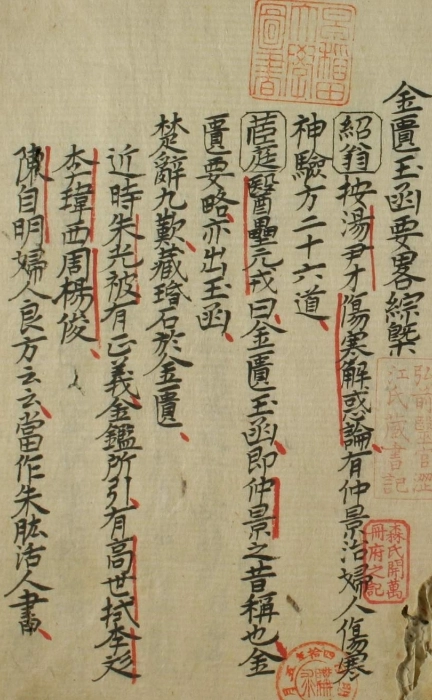 金匱玉函要畧綜槩
紹翁按湯尹才傷寒解惑論有仲景治婦人傷寒
神驗方二十六道
茝庭醫壘元戎曰金匱玉函即仲景之昔稱也金
匱要略亦出玉函
楚辭九歎藏瑉石於金匱
近時朱光被有正義金鑑所引有高世栻李彣
李瑋西周楊俊
陳自明婦人良方云云當作朱肱活人書
早稲田大學圖書
弘前醫官澀江氏藏書記
森氏開萬冊府之記